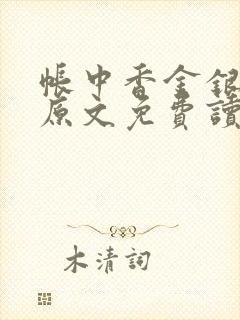 帳中香金銀
原文免費讀
木清詞